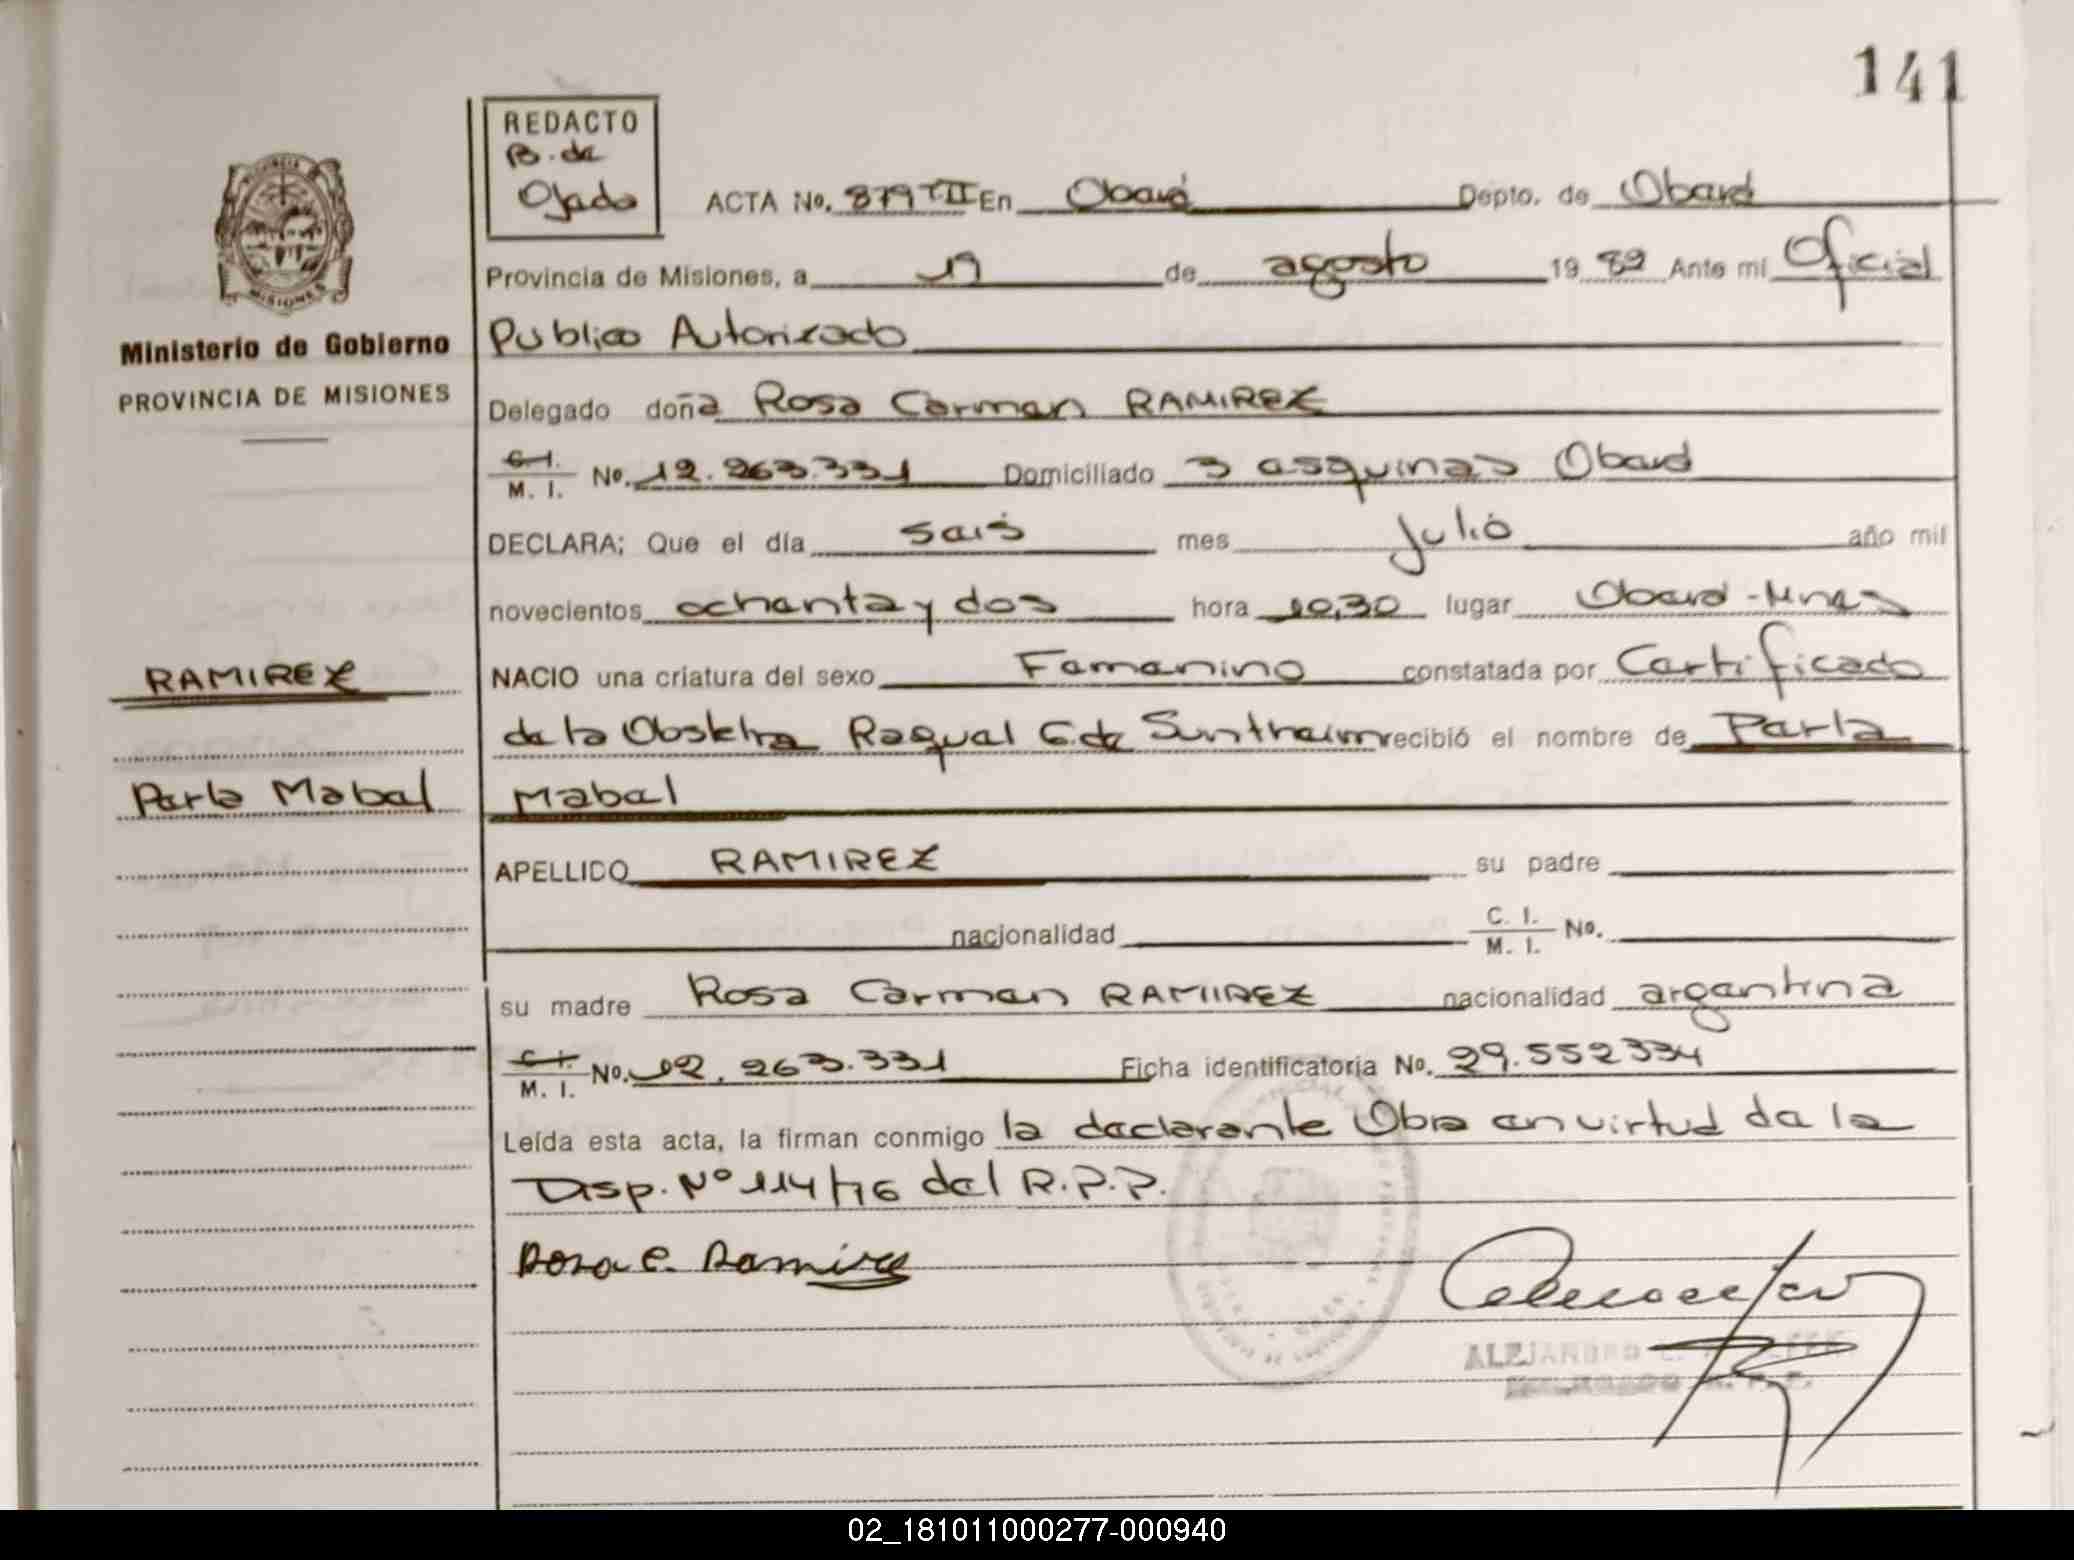 141
REDACTO
B. de
Ojeda
ACTA No. 879 TII En Oberá Depto. de Oberá
PROVINCIA MISIONES
Provincia de Misiones, a 19 de agosto 19 82 Ante mí Oficial
Ministerio de Gobierno
Publico Autorizado
PROVINCIA DE MISIONES
Delegado doña Rosa Carmen RAMIREZ
C. I. M. I. No. 12.263.331 Domiciliado 3 esquinas Oberá
DECLARA: Que el día seis mes julio año mil
novecientos ochenta y dos hora 10,30 lugar Oberá - Mnes
RAMIREZ
NACIO una criatura del sexo Femenino constatada por Certificado
de la Obstetra Raquel G. de recibió el nombre de Perla
Perla Mabel
Mabel
APELLIDO RAMIREZ su padre
nacionalidad C. I. M. I. No.
su madre Rosa Carmen RAMIREZ nacionalidad argentina
C. I. M. I. No. 12.263.331 Ficha identificatoria No. 29.552334
Leída esta acta, la firman conmigo la declarante Obra en virtud de la
Disp. Nº 114/76 del R.P.P.
Rosa C. Ramirez
ALEJANDRO
02_181011000277-000940